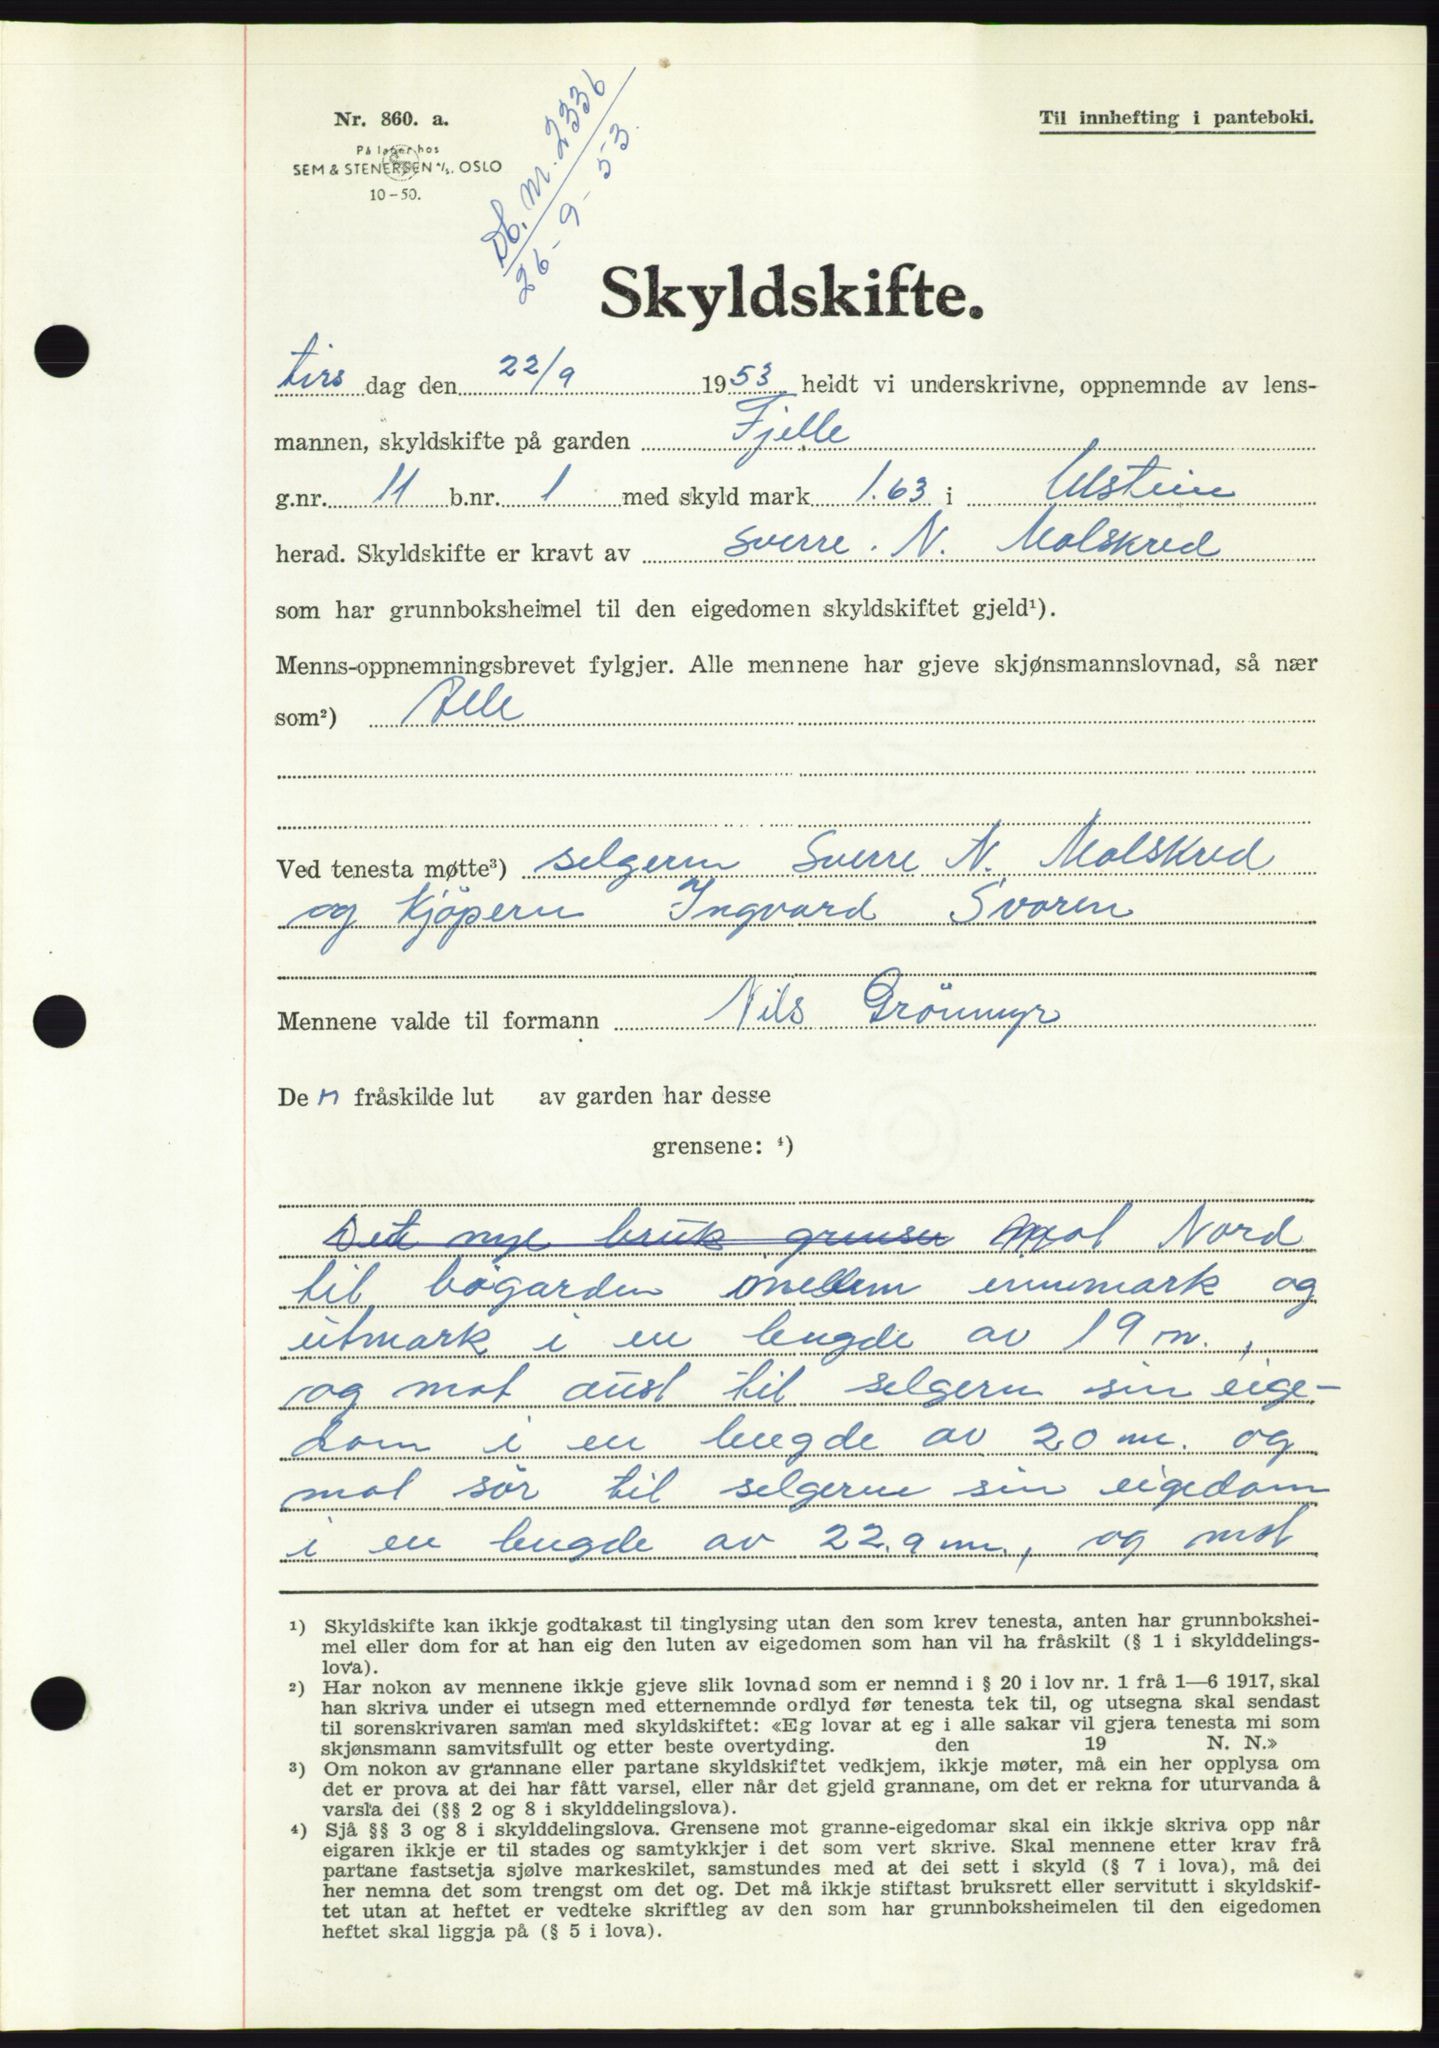 Nr. 860. a.
Til innhefting i panteboki.
På lager hos
SEM & STENERSEN A/S. OSLO
10-50.
Db. nr. 2336
26-9-53.
Skyldskifte.
tirs dag den 22/9 1953 heldt vi underskrivne, oppnemnde av lens-
mannen, skyldskifte på garden Fjelle
g.nr. 11 b.nr. 1 med skyld mark 1.63 i Ulstein
herad. Skyldskifte er kravt av Sverre. N. Molskred
som har grunnboksheimel til den eigedomen skyldskiftet gjeld¹).
Menns-oppnemningsbrevet fylgjer. Alle mennene har gjeve skjønsmannslovnad, så nær
som²) Alle
Ved tenesta møtte³) selgeren Sverre N. Molskred
og Kjöperen Ingvard Svoren
Mennene valde til formann Nils Grönmyr
De n fråskilde lut av garden har desse
grensene: ⁴)
Det nye bruk grenser mot Nord
til bøgarden mellem ennmark og
utmark i en lengde av 19 m.,
og mot aust til selgeren sin eige-
dom i en lengde av 20 m. og
mot sör til selgeren sin eigedom
i en lengde av 22.9 m., og mot
¹) Skyldskifte kan ikkje godtakast til tinglysing utan den som krev tenesta, anten har grunnbokshei-
mel eller dom for at han eig den luten av eigedomen som han vil ha fråskilt (§ 1 i skylddelings-
lova).
²) Har nokon av mennene ikkje gjeve slik lovnad som er nemnd i § 20 i lov nr. 1 frå 1—6 1917, skal
han skriva under ei utsegn med etternemnde ordlyd før tenesta tek til, og utsegna skal sendast
til sorenskrivaren saman med skyldskiftet: «Eg lovar at eg i alle sakar vil gjera tenesta mi som
skjønsmann samvitsfullt og etter beste overtyding. den 19 N. N.»
³) Om nokon av grannane eller partane skyldskiftet vedkjem, ikkje møter, må ein her opplysa om
det er prova at dei har fått varsel, eller når det gjeld grannane, om det er rekna for uturvanda å
varsla dei (§§ 2 og 8 i skylddelingslova).
⁴) Sjå §§ 3 og 8 i skylddelingslova. Grensene mot granne-eigedomar skal ein ikkje skriva opp når
eigaren ikkje er til stades og samtykkjer i det som vert skrive. Skal mennene etter krav frå
partane fastsetja sjølve markeskilet, samstundes med at dei sett i skyld (§ 7 i lova), må dei
her nemna det som trengst om det og. Det må ikkje stiftast bruksrett eller servitutt i skyldskif-
tet utan at heftet er vedteke skriftleg av den som har grunnboksheimelen til den eigedomen
heftet skal liggja på (§ 5 i lova).